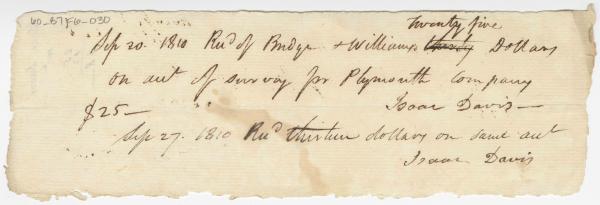 60-B7F6-030
twenty five
Sep 20. 1810 Recd of Bridge & Williams thirty Dollars
on act of survay for Plymouth Company
$25— Isaac Davis—
Sep 27. 1810 Recd thirteen dollars on same act
Isaac Davis